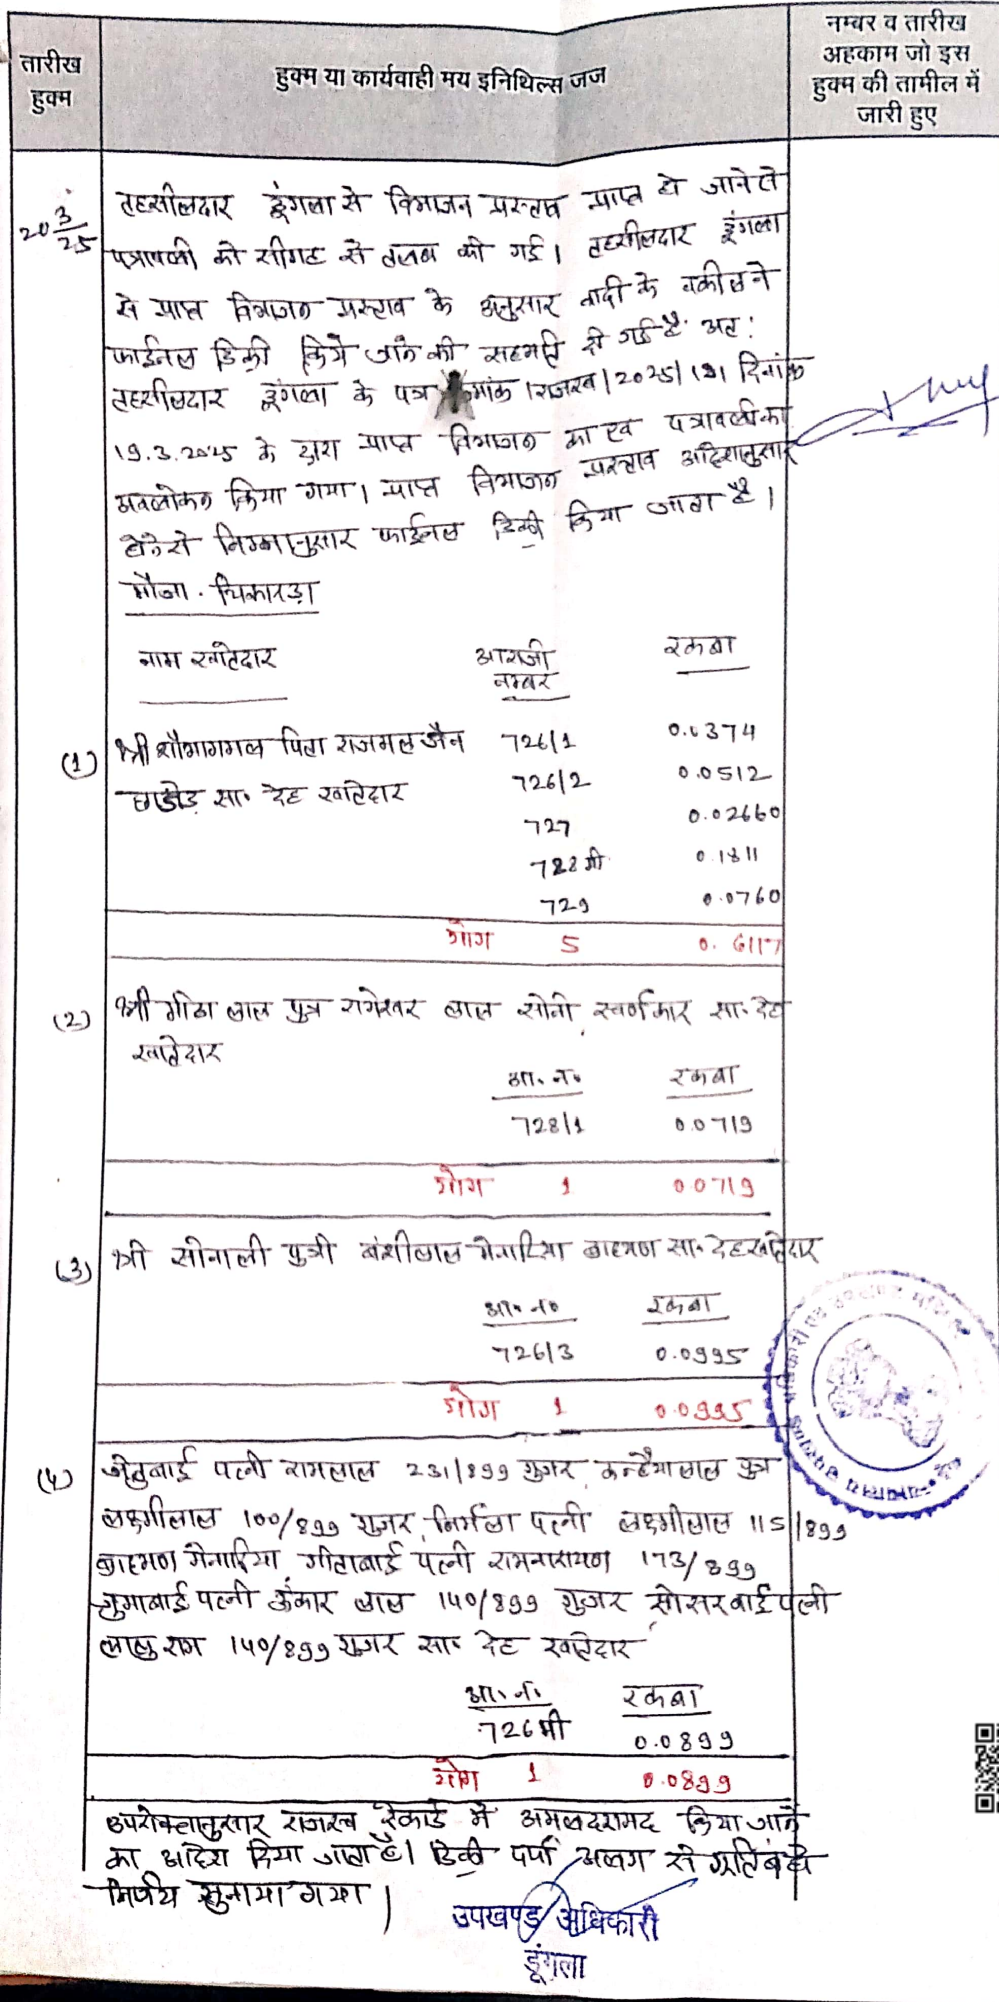 तारीख
हुक्म
हुक्म या कार्यवाही मय इनिथिल्स जज
नम्बर व तारीख
अहकाम जो इस
हुक्म की तामील में
जारी हुए
20 3/25
तहसीलदार डूंगला से विभाजन प्रस्ताव प्राप्त हो जाने से
पत्रावली को सीगह से तलब की गई। तहसीलदार डूंगला
से प्राप्त विभाजन प्रस्ताव के अनुसार वादी के वकील ने
फाईनल डिक्री किये जाने की सहमति दी गई है अतः
तहसीलदार डूंगला के पत्र क्रमांक राजस्व/2025/191 दिनांक
19.3.2025 के द्वारा प्राप्त विभाजन का एवं पत्रावली का
अवलोकन किया गया। प्राप्त विभाजन प्रस्ताव आदेशानुसार
होने से निम्नानुसार फाईनल डिक्री किया जाता है।
मौजा - चिकारड़ा
नाम खातेदार आराजी नम्बर रकबा
(1) श्री शौभागमल पिता राजमल जैन 726/1 0.0374
सा॰ देह खातेदार 726/2 0.0512
727 0.02660
722 मी 0.1811
729 0.0760
योग 5 0.6117
(2) श्री गीठा लाल पुत्र रामेश्वर लाल सोनी स्वर्णकार सा॰ देह
खातेदार
आ॰ न॰ रकबा
728/1 0.0719
योग 1 0.0719
(3) श्री सोनाली पुत्री बंशीलाल मेनारिया ब्राहमण सा॰ देह खातेदार
आ॰ न॰ रकबा
726/3 0.0995
योग 1 0.0995
(4) जेतुबाई पत्नी रामलाल 231/899 गुजर, कन्हैयालाल पुत्र
लक्ष्मीलाल 100/899 गुजर, निर्मला पत्नी लक्ष्मीलाल 115/899
ब्राहमण मेनारिया, गीताबाई पत्नी रामनारायण 173/899
गुमाबाई पत्नी ऊंकार लाल 140/899 गुजर सोसर बाई पत्नी
लालु राम 140/899 गुजर सा॰ देह खातेदार
आ॰ न॰ रकबा
726 मी 0.0899
योग 1 0.0899
उपरोक्तानुसार राजस्व रेकार्ड में अमलदरामद किया जाने
का आदेश दिया जाता है। डिक्री पर्चा अलग से मुर्तिब हो
निर्णय सुनाया गया।
उपखण्ड अधिकारी
डूंगला